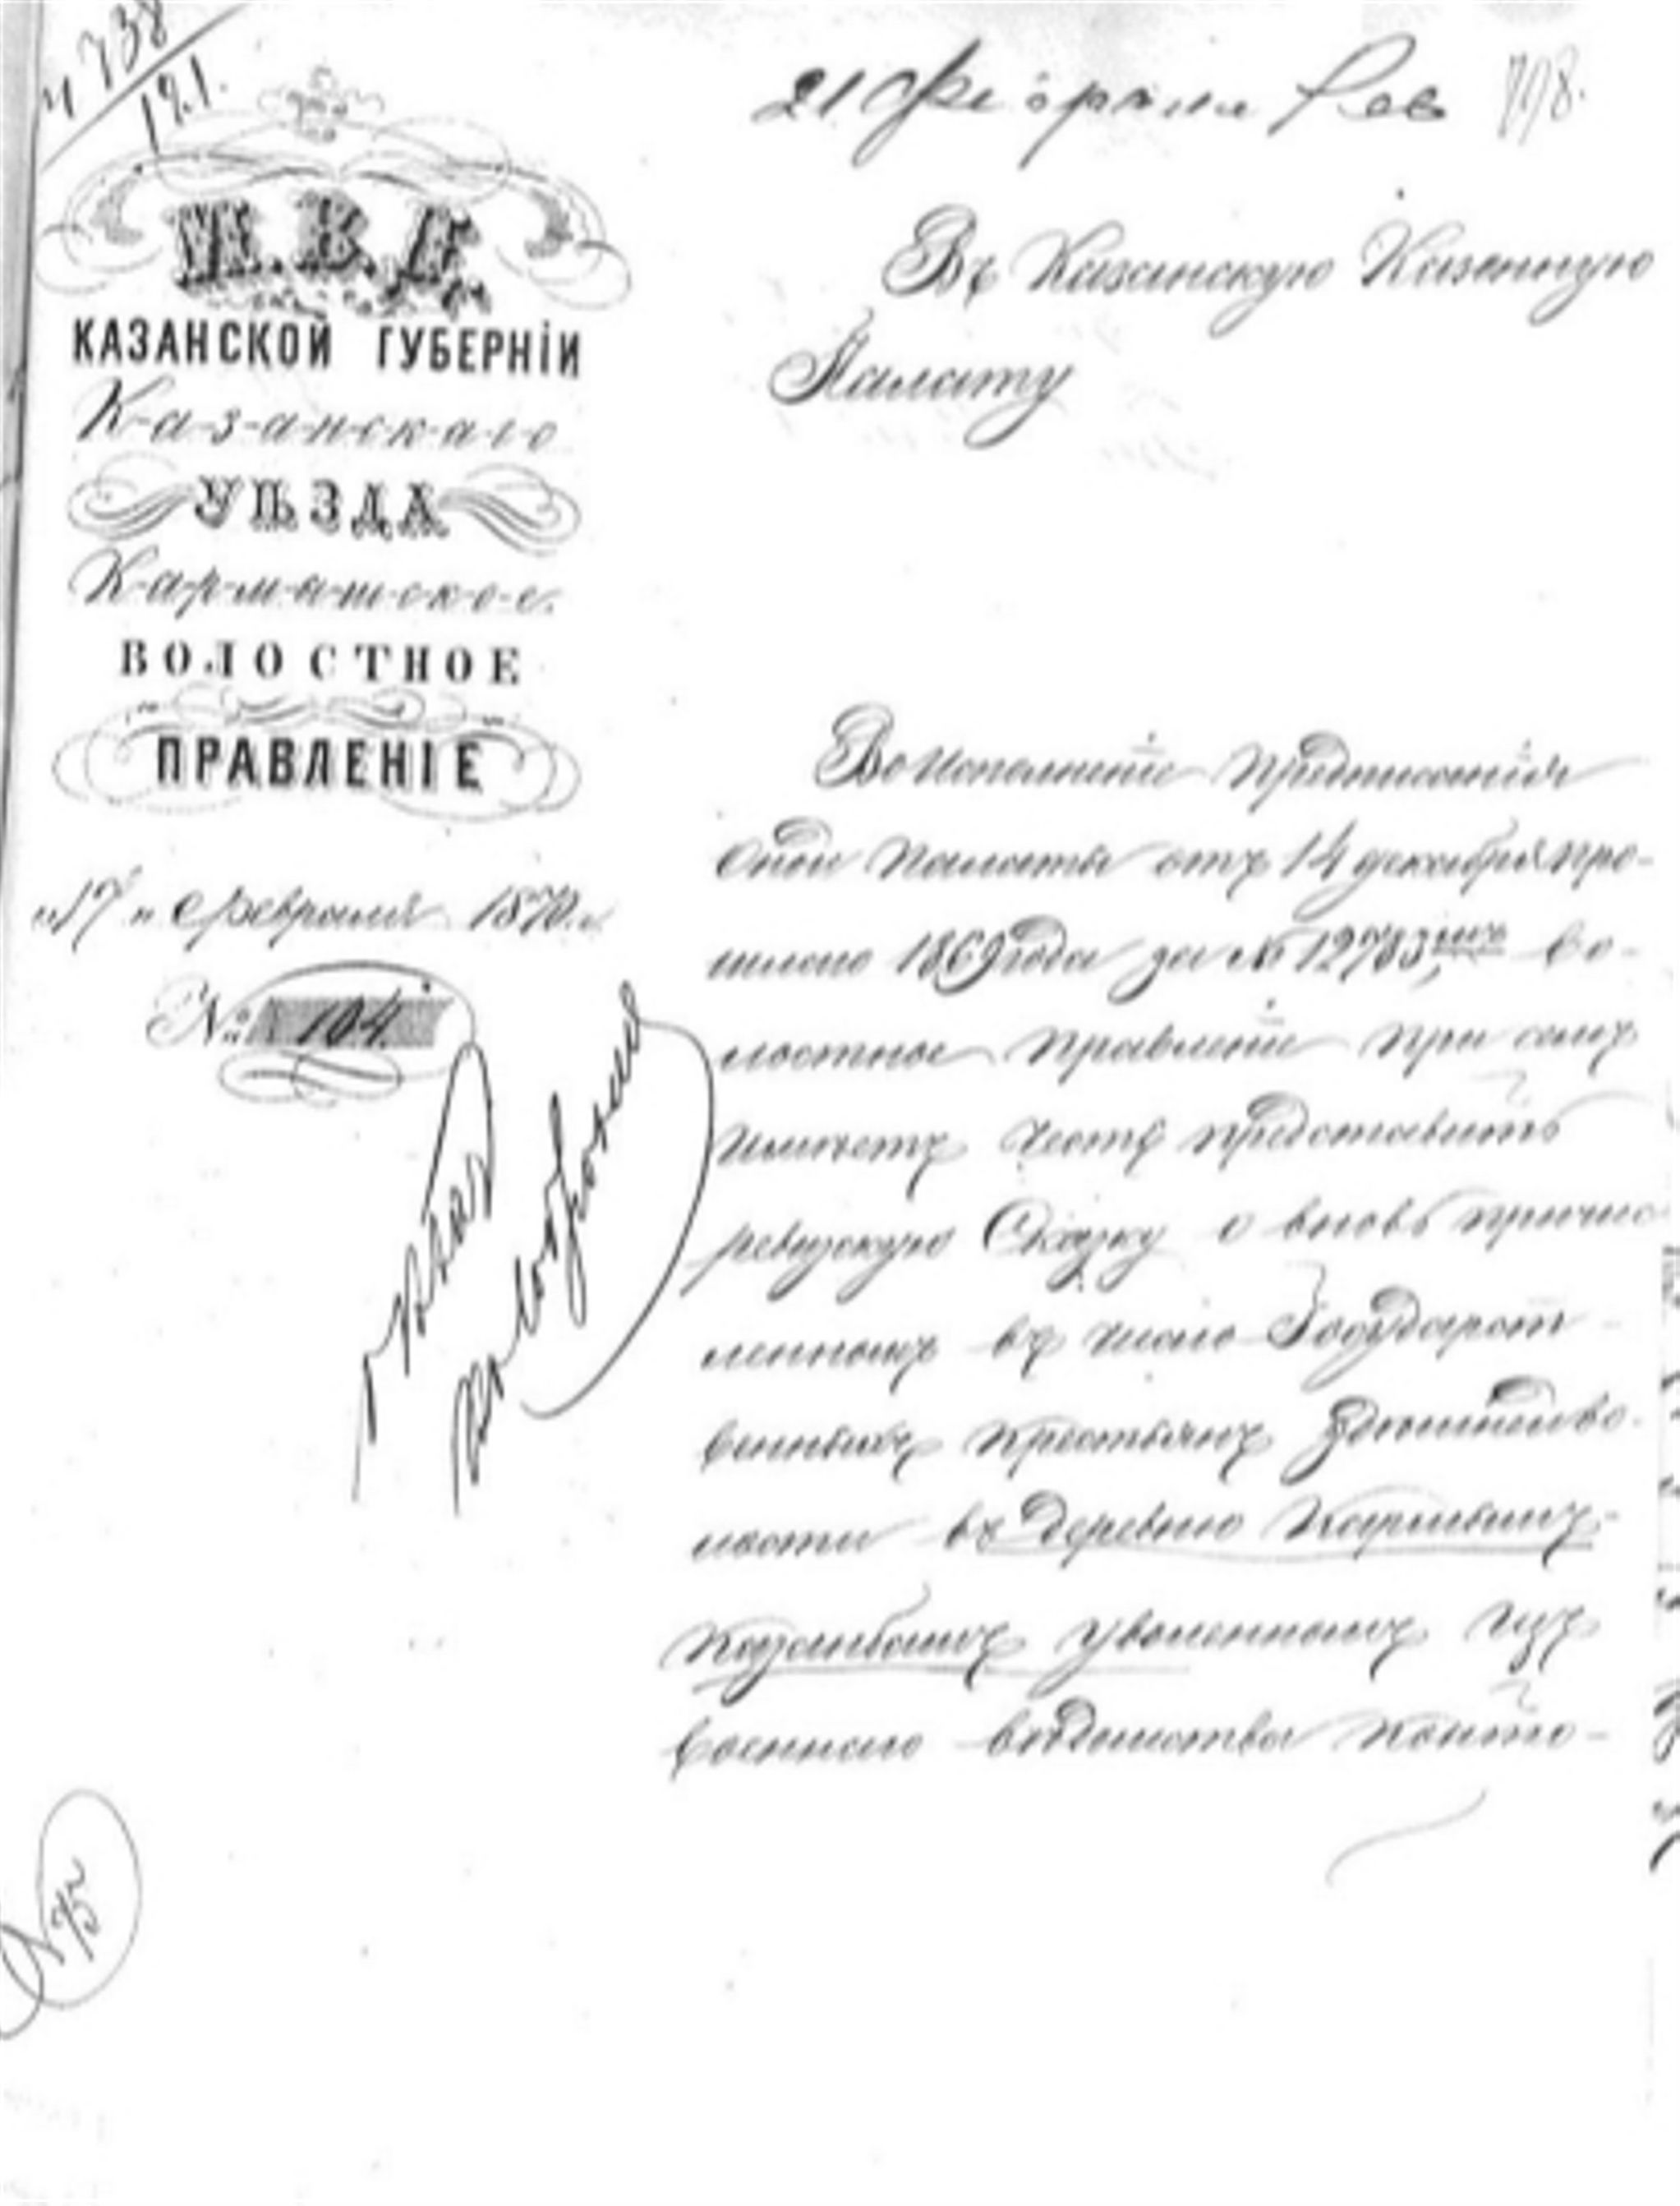 4738
121.
21 Февраля Рев 798.
М.В.Д.
КАЗАНСКОЙ ГУБЕРНІИ
Казанскаго
УѢЗДА
Кармышское
ВОЛОСТНОЕ
ПРАВЛЕНІЕ
"17" Февраля 1870 г.
№ 104.
Въ Казанскую Казенную
Палату
Во исполненіе предписанія
Оной Палаты отъ 14 декабря про-
шлаго 1869 года за № 12783, во-
лостное Правленіе при семъ
имѣетъ честь представить
ревизскую Сказку о вновь причис
ленномъ въ число Государст
венныхъ крестьянъ
ности въ деревню
уволенномъ изъ
военнаго вѣдомства канто-
№ 75